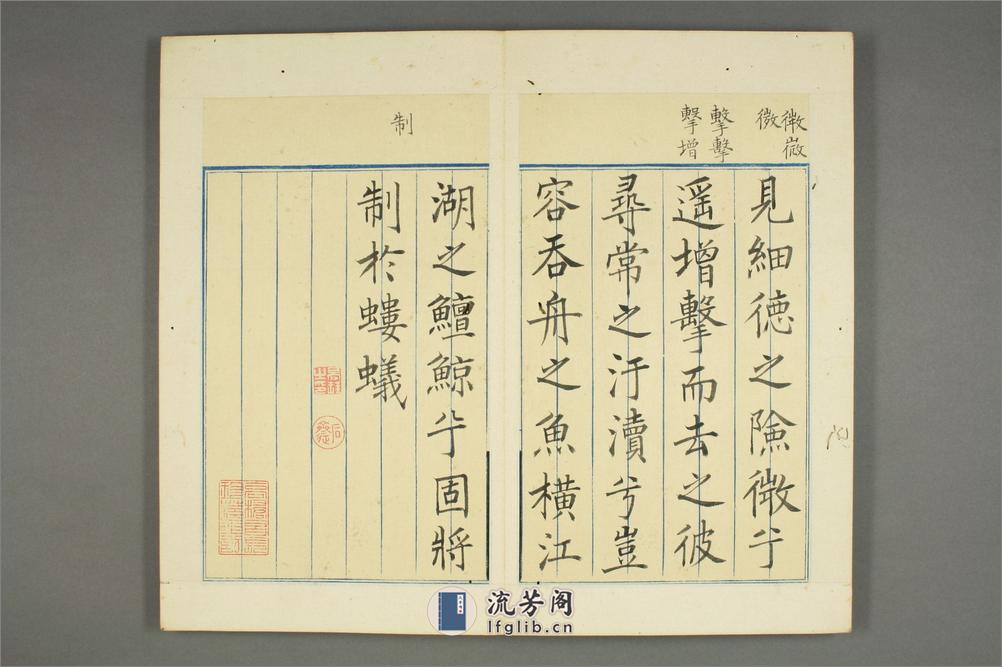 微微
微
擊擊
擊增
見細徳之險微兮
遥增擊而去之彼
尋常之汙瀆兮豈
容吞舟之魚橫江
制
湖之鱣鯨兮固將
制於螻蟻
流芳阁
lfglib.cn